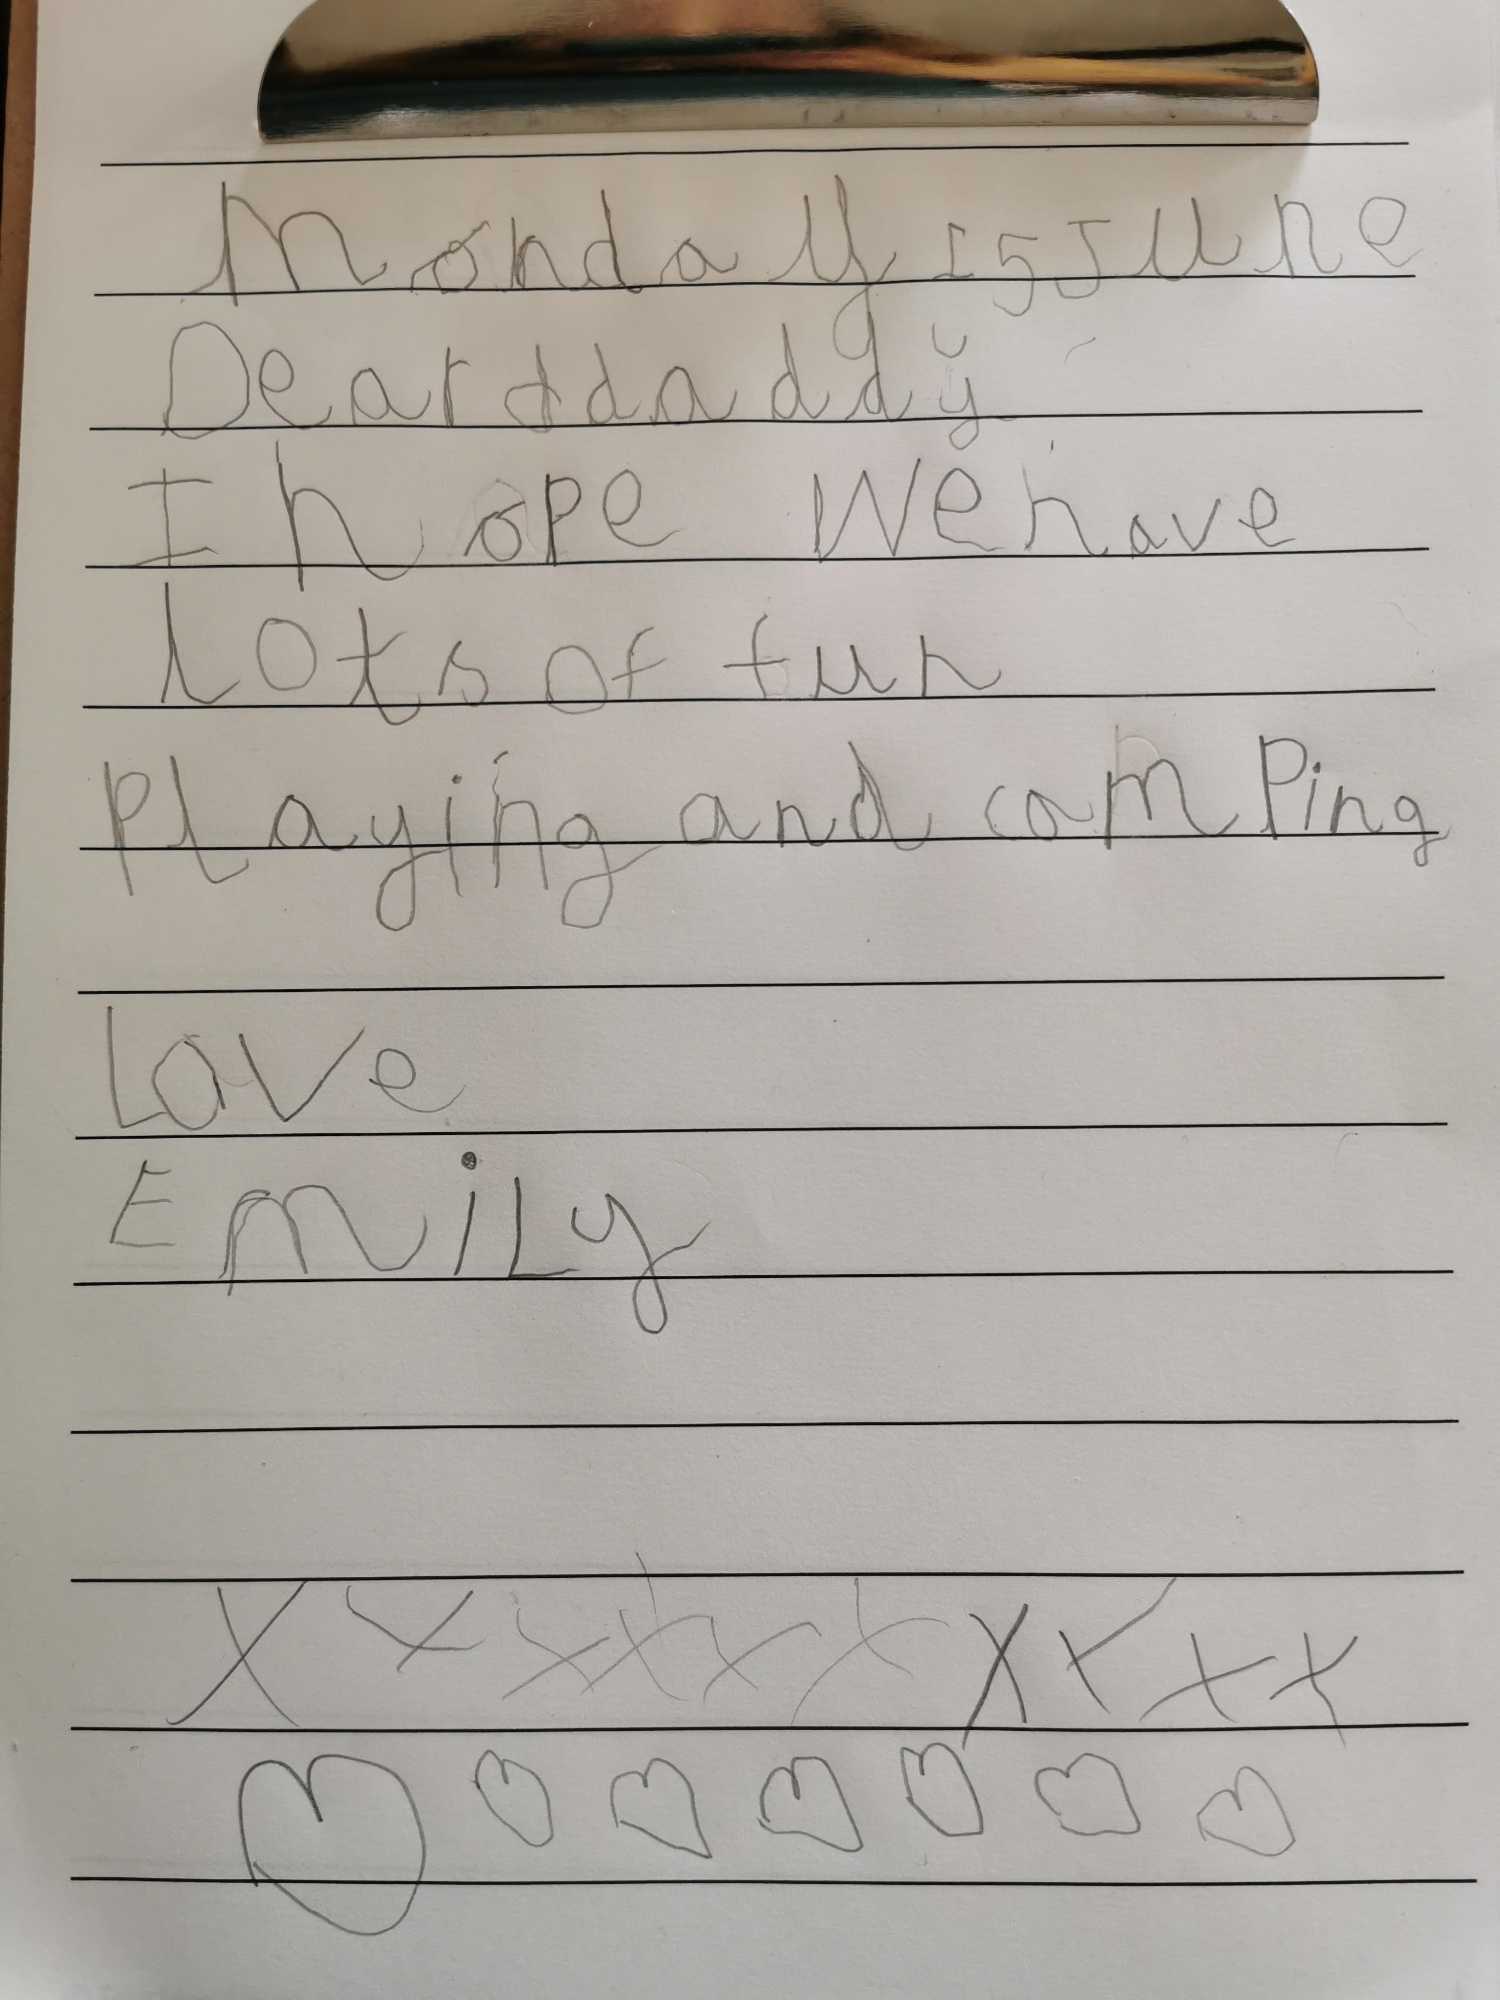 Monday 15 June
Dear ddaddy
I hope We have
lots of fun
Playing and camPing
Love
EmiLy
X X X X X X X X X X